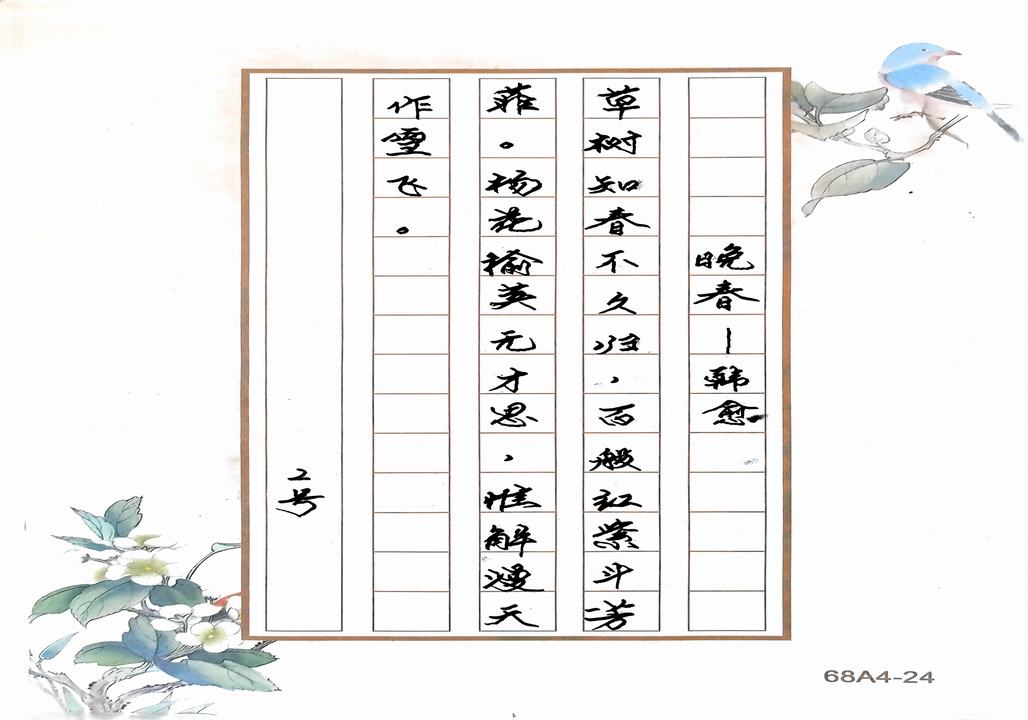 晚春—韩愈
草树知春不久归，百般红紫斗芳
菲。杨花榆英无才思，惟解漫天
作雪飞。
2号
68A4-24